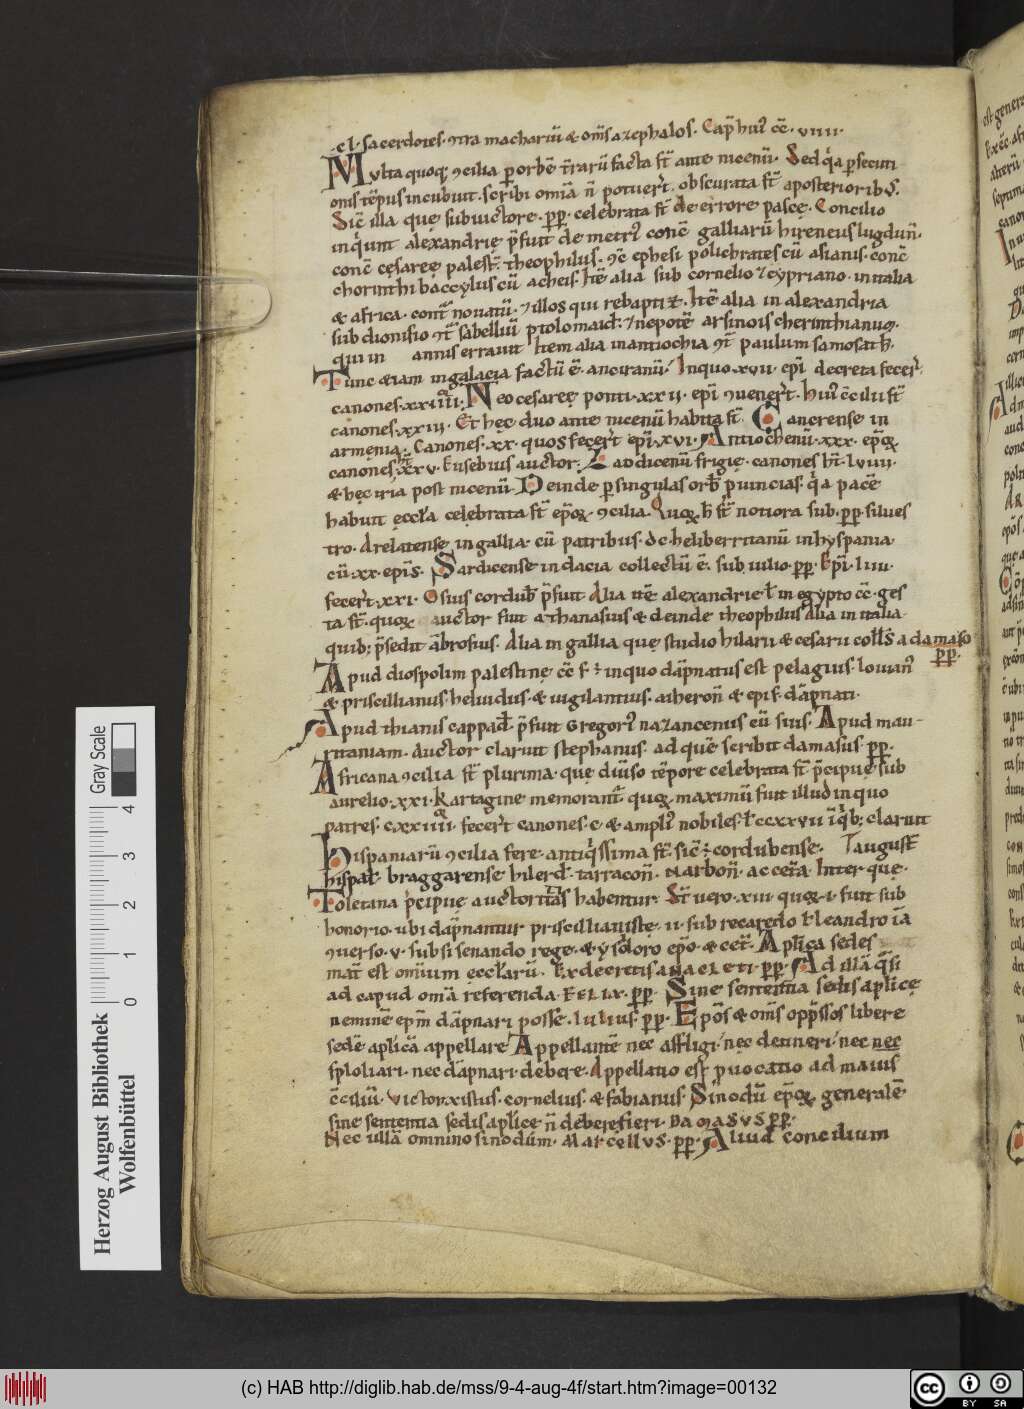 .cl. sacerdotes. ꝯtra machariū & om̄s acephalos. Cap̄ hui᾽ cc̄. viiii.
Multa quoq; ꝯcilia ꝑ orbē t̄rarū facta st̄ ante nicenū. Sed q̄a ꝑsecuti
onis tēpus incubuit. scribi omīa n̄ potuer̄t. obscurata st̄ a posteriorib᾽.
Sic̄ illa que sub victore. pp̄. celebrata st̄ de errore pasce. Concilio
inq̄unt alexandrie p̄fuit demetri᾽ conc̄ galliarū hireneus lugdun̄.
conc̄ cesaree palest̄. theophilus. ꝯc̄ ephesi policbrates cū asianis. conc̄
chorinthi baccylus cū acheis. Itē alia sub cornelio ⁊ cypriano. in italia
& africa. cont̄ nouatū. ⁊ illos qui rebaptiz̄. Itē alia in alexandria
sub dionisio ꝯt̄ sabelliū ptolomaid̄. ⁊ nepotē arsinois cherinthianuꝫ.
qui in annis errauit Item alia in antiochia ꝯt̄ paulum samosath̄.
Tunc etiam in galacia factū ē. anciranū. In quo xvii. ep̄i decreta fecer̄.
canones. xxiiii. Neo cesaree ponti. xxii. ep̄i ꝯuener̄t. Hui᾽ cc̄ilii st̄
canones. xxiii. Et hec duo ante nicenū habita st̄ Cancrense in
armenia. Canones. xx. quos fecer̄t ep̄i. xvi. Antiochenū. xxx. ep̄oꝝ
canones xxv. Eusebius auctor. Laodicenū frigie. canones ht̄. lviiii.
& hec iria post nicenū. Deinde ꝑ singulas orb̄ ꝓuincias. q̄a pacē
habuit eccl̄a celebrata st̄ ep̄oꝝ. ꝯcilia. Quoꝝ h̄ st̄ notiora sub. pp̄. silues
tro. Arelatense in gallia. cū patribus. dc. heliberritanū in hyspania.
cū. xx. ep̄is. Sardicense in dacia collectū ē. sub iulio. pp̄. Ep̄i. liii.
fecer̄t. xxi. Osius cordub̄ p̄fuit Alia itē alexandrie l̄ in egypto cc̄. ges
ta st̄. quoꝝ auctor fuit athanasius & deinde theophilus Alia in italia
quib; p̄sedit ābrosius. Alia in gallia que studio hilarii & cesarii coll̄s a damaso
pp̄.
Apud diospolim palestine cc̄ f̄ in quo dāpnatus est pelagius. Iouian᾽
& priscillianus. heluidus. & vigilantius. a iheron̄ & epif̄. dāpnati.
Apud thianis cappad̄. p̄fuit Gregori᾽ nazancenus cū suis. Apud mau-
ritaniam. Auctor claruit stephanus. ad quē scribit damasus. pp̄.
Africana ꝯcilia st̄ plurima. que diu̅so tēpore celebrata st̄ p̄cipue sub
aurelio. xxi. kartagine memorant̄. quoꝝ maximū fuit illud in quo
patres. cxxiiii. fecer̄t canones. c. & ampli᾽ nobiles. l̄ ccxxvii īq̄b; claruit
Hispaniarū ꝯcilia fere. antiq̄ssima st̄. sic̄ cordubense. august̄
hispal̄. braggarense hilerd̄. tarracon̄. Narbon̄. ac cet̄a. Inter que.
Toletana p̄cipue auctoritatis habentur. St̄ vero. xiii. quoꝝ. i. fuit sub
honorio. ubi dāpnantur priscillianiste. ii. sub recaredo l̄ leandro iā
ꝯuerso. v. sub sisenando rege. & ysidoro ep̄o. & cet̄. Aplica sedes
mat̄ est omīum eccl̄arū. Ex decretis anacleti. pp̄. Ad illā q̄si
ad capud omīa referenda. Felix. pp̄. Sine sententia sedis aplice
neminē ep̄m dāpnari posse. Iulius. pp̄. Ep̄os & om̄s opp̄ssos libere
sedē aplicā appellare Appellantē nec affligi nec detineri. nec nec
spoliari. nec dāpnari. debere. Appellatio est ꝓuocatio ad maius
cc̄iliū. Victor. xistus. cornelius. & fabianus. Sinodū ep̄oꝝ generalē
sine sententia sedis aplice n̄ debere fieri. Damasus pp̄.
Nec ullā omnino sinodum. Marcellus. pp̄. Aliud concilium
Herzog August Bibliothek
Wolfenbüttel
Gray Scale
0 1 2 3 4
(c) HAB http://diglib.hab.de/mss/9-4-aug-4f/start.htm?image=00132
cc BY SA